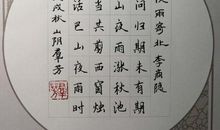 夜雨寄北 李商隐
问归期未有期
山夜雨涨秋池
当共剪西窗烛
话巴山夜雨时
戌秋 山阴群芳